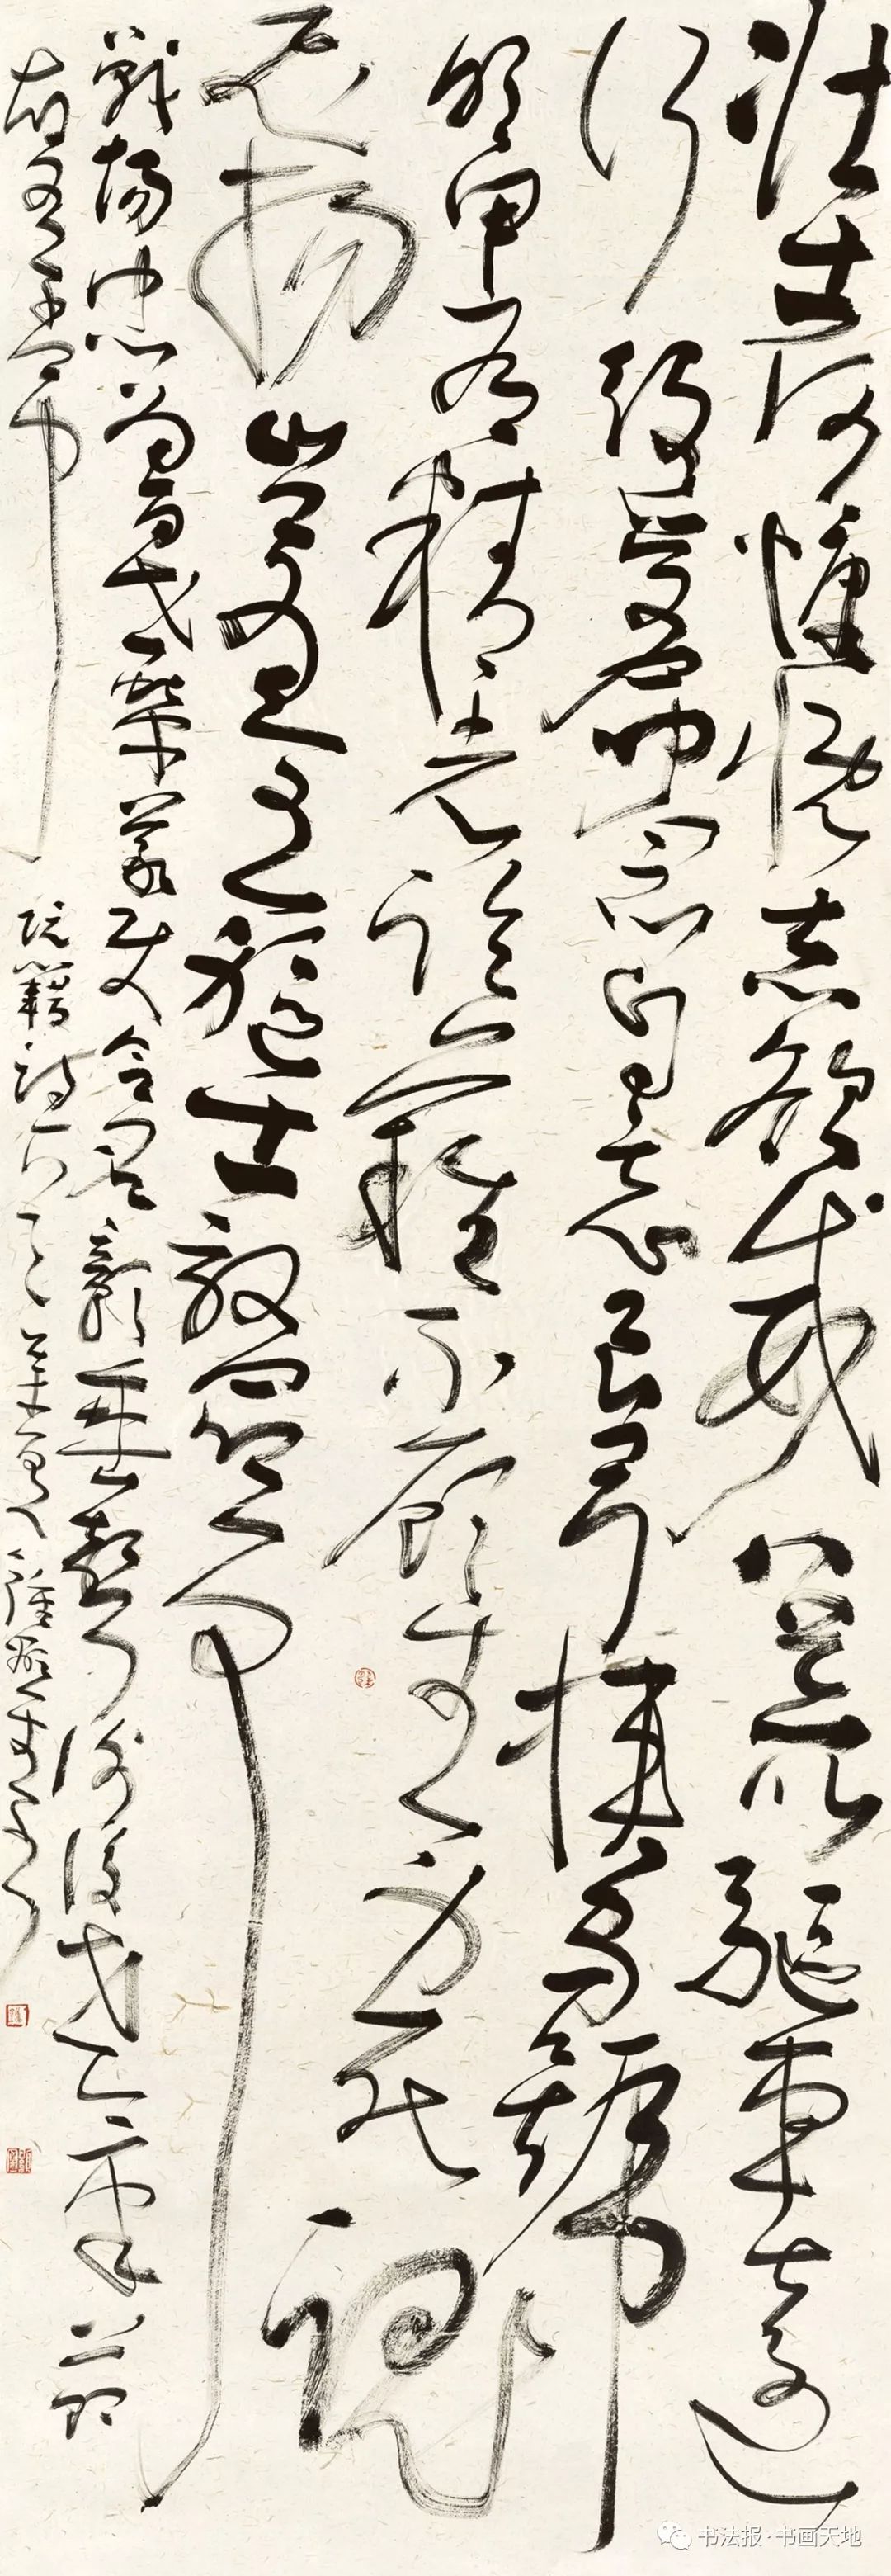 壮士何慷慨志欲威八荒驱车远
行役受命念自忘良弓挟乌号
明甲有精光临难不顾生身死魂
飞扬岂为全躯士效命争
战场忠为百世荣义使令名彰垂声谢后世气节
故有常
阮籍诗咏怀
书法报·书画天地